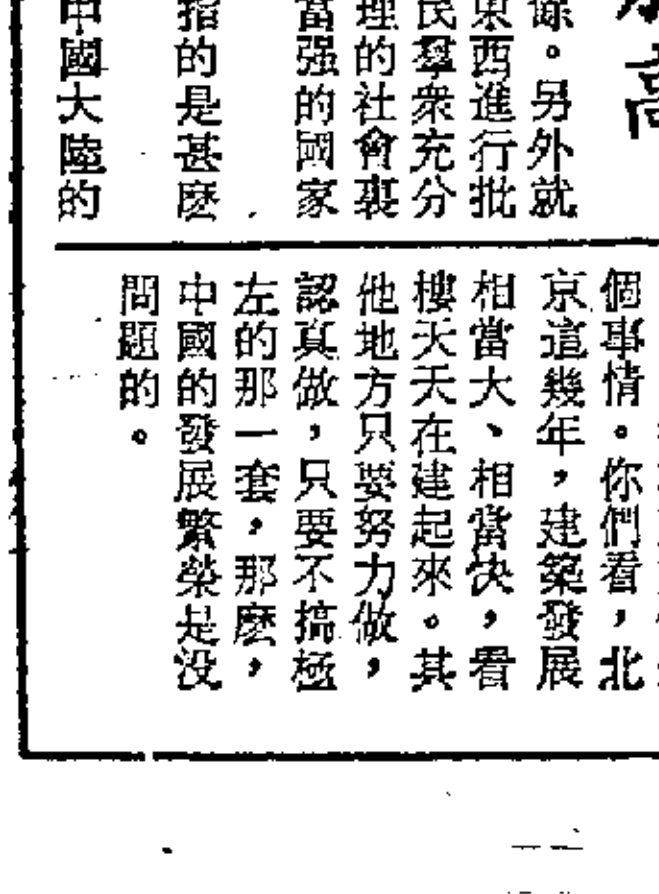 高
。另外就
東西進行批
民羣衆充分
理的社會裏
富强的國家
指的是甚麽
中國大陸的
個事情。你們看,北
京這幾年,建築發展
相當大、相當快,看
樓天天在建起來。其
他地方只要努力做,
認真做,只要不搞極
左的那一套,那麽,
中國的發展繁榮是没
問題的。